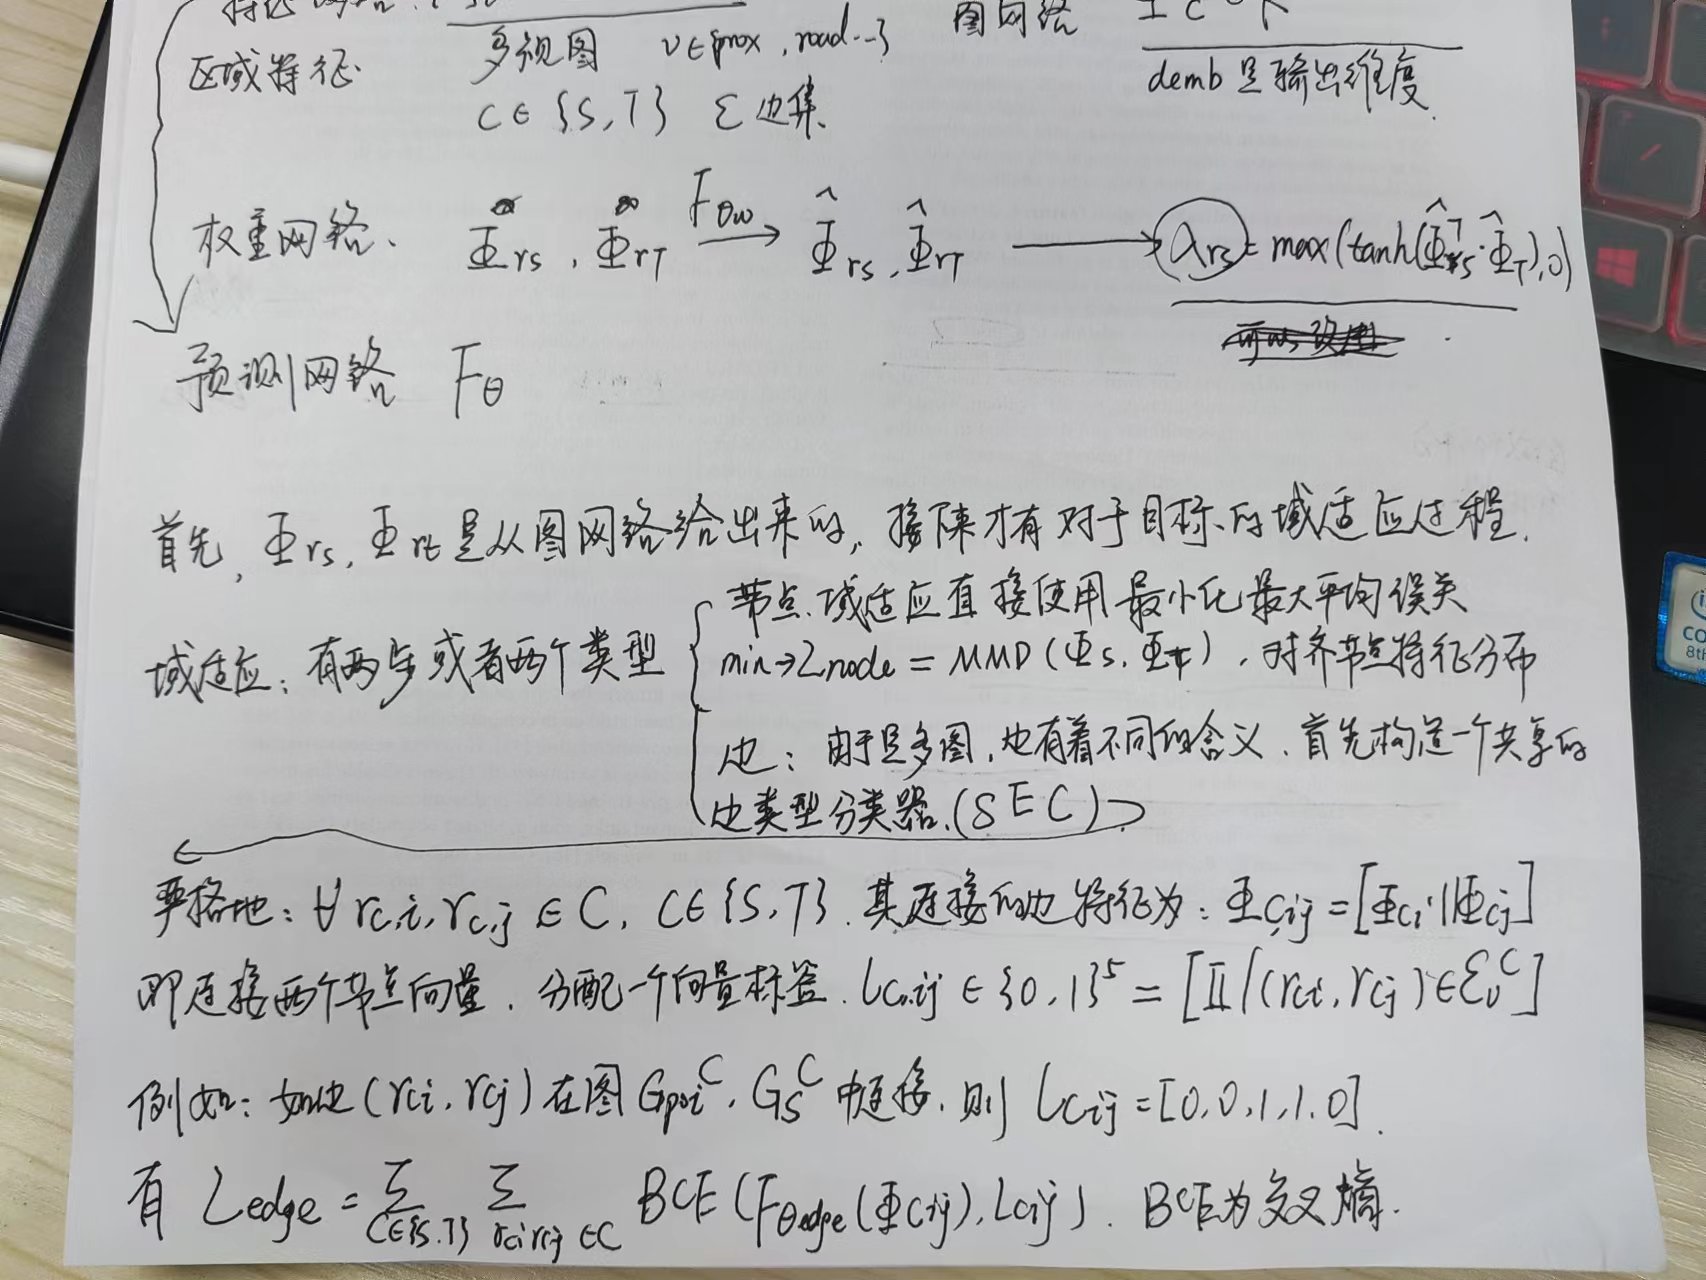 区域特征.
多视图 v∈{prox, road...}
图网络
C∈{S,T} Σ边集.
demb是输出维度.
权重网络、 Φrs, ΦrT Fθw→ Φ̂rs, Φ̂rT → λrs = max(tanh(Φ̂ᵀrs·Φ̂T),0)
预测网络 Fθ
首先, Φrs, Φrt是从图网络给出来的, 接下来才有对于目标的域适应过程.
域适应: 有两步或者两个类型
节点.域适应直接使用最小化最大平均误差
min→Lnode = MMD(ΦS, ΦT), 对齐节点特征分布
边: 由于是多图, 边有着不同的含义. 首先构造一个共享的
边类型分类器.(SEC)
严格地: ∀ rc,i, rc,j ∈ C, C∈{S,T}. 其连接的边特征为: Φc,ij = [Φci||Φcj]
即连接两个节点向量. 分配一个向量标签. lc,ij ∈ {0,1}⁵ = [𝕀(rci, rcj)∈ℰᵥᶜ]
例如: 如边(rci, rcj)在图Gpoiᶜ, Gsᶜ中连接, 则 lcij = [0,0,1,1,0].
有 Ledge = Σ C∈{S,T} Σ rci,rcj∈C BCE(Fθedge(Φcij), lcij). BCE为交叉熵.